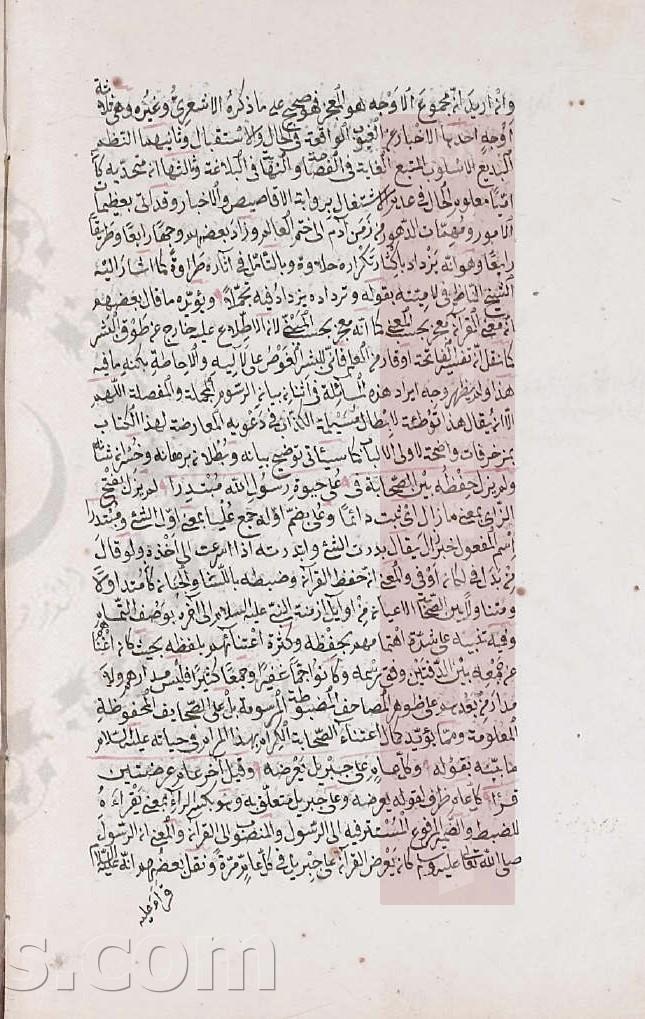 وان اريد ان مجموع الاوجه هو المعجز فهو صحيح على ما ذكره الاشعري وغيره وهو ثلاثة
اوجه احدها الاخبار عن الغيوب الواقعة في الحال والاستقبال وثانيهما النظم
البديع الاسلوب المنيع الغاية في الفصاحة والنهاية في البلاغة وثالثها ان متحديه كان
اميا معلوم الحال في عدم الاشتغال برواية الاقاصيص والاخبار وقد اتى بعظيمات
الامور ومهمات الدهور من زمن آدم الى ختم العالم وزاد بعضهم وجها رابعا وطريقا
رابعا وهو انه يزداد باكثار تكراره حلاوة وبالتامل في اثاره طراوة كما اشار اليه
الشيخ الشاطبي في لاميته بقوله وترداده يزداد فيه تجملا ويؤيده ما قال بعضهم
ان معنى القرآن معجز بحسب المعنى كما انه معجز بحسب المبنى لان الاطلاع عليه خارج عن طوق البشر
كما نقل ان تفسير الفاتحة اوقار من العلم فانى للبشر الغوص على لآليه والاحاطة بكنه ما فيه
هذا ولم يظهر وجه ايراد هذه المسائل في اثناء بيان الرسوم المجملة والمفصلة اللهم
الا ان يقال هذا توطئة لابطال مسيلمة الكذاب في دعويه المعارضة لهذا الكتاب
بمزخرفات واضحة لاولي الالباب كما سيأتي توضيح بيانه وبطلان برهانه وخسران شانه
ولم يزل حفظه بين الصحابة في على حيوة رسول الله مبتدرا لم يزل بفتح
الزاي بمعنى ما زال اي ثبت دائما وعلى بضم اوله جمع عليا بمعنى اول الشئ ومبتدرا
اسم المفعول خبر لم يزل يقال بدرت الشئ وابتدرته اذا اسرعت الى اخذه ولو قال
من بدل في لكان اوفى والمعنى ان حفظ القرآن وضبطه باللسان والجنان كان متداولا
ومتناولا بين الصحابة الاعيان من اوايل ازمنة النبي عليه السلام الى آخره بوصف التمام
وفيه تنبيه على شدة اهتمامهم بحفظه وكثرة اعتنائهم بلفظه بحيث كان اغناهم
عن جمعه بين الدفتين وفق رسمه وكانوا جما غفيرا وجمعا كثيرا فليس مدارهم ولا
مدار من بعدهم على ظواهر المصاحف المضبوطة المرسومة بل على الصحايف المحفوظة
المعلومة ومما يؤيد كمال اعتناء الصحابة الكرام بهذا المرام في حياته عليه السلام
ما بينه بقوله وكل عام على جبريل يعرضه وقيل آخر عام عرضتين
قرا كل عام ظرف لقوله يعرضه وعلى جبريل متعلق به وهو بكسر الراء بمعنى يقراه
للضبط والضمير المرفوع المستتر فيه الى الرسول والمنصوب الى القرآن والمعنى ان الرسول
صلى الله تعالى عليه وسلم كان يعرض القرآن على جبريل في كل عام مرة ونقل بعضهم انه عليه السلام
قرأ عليه
s.com